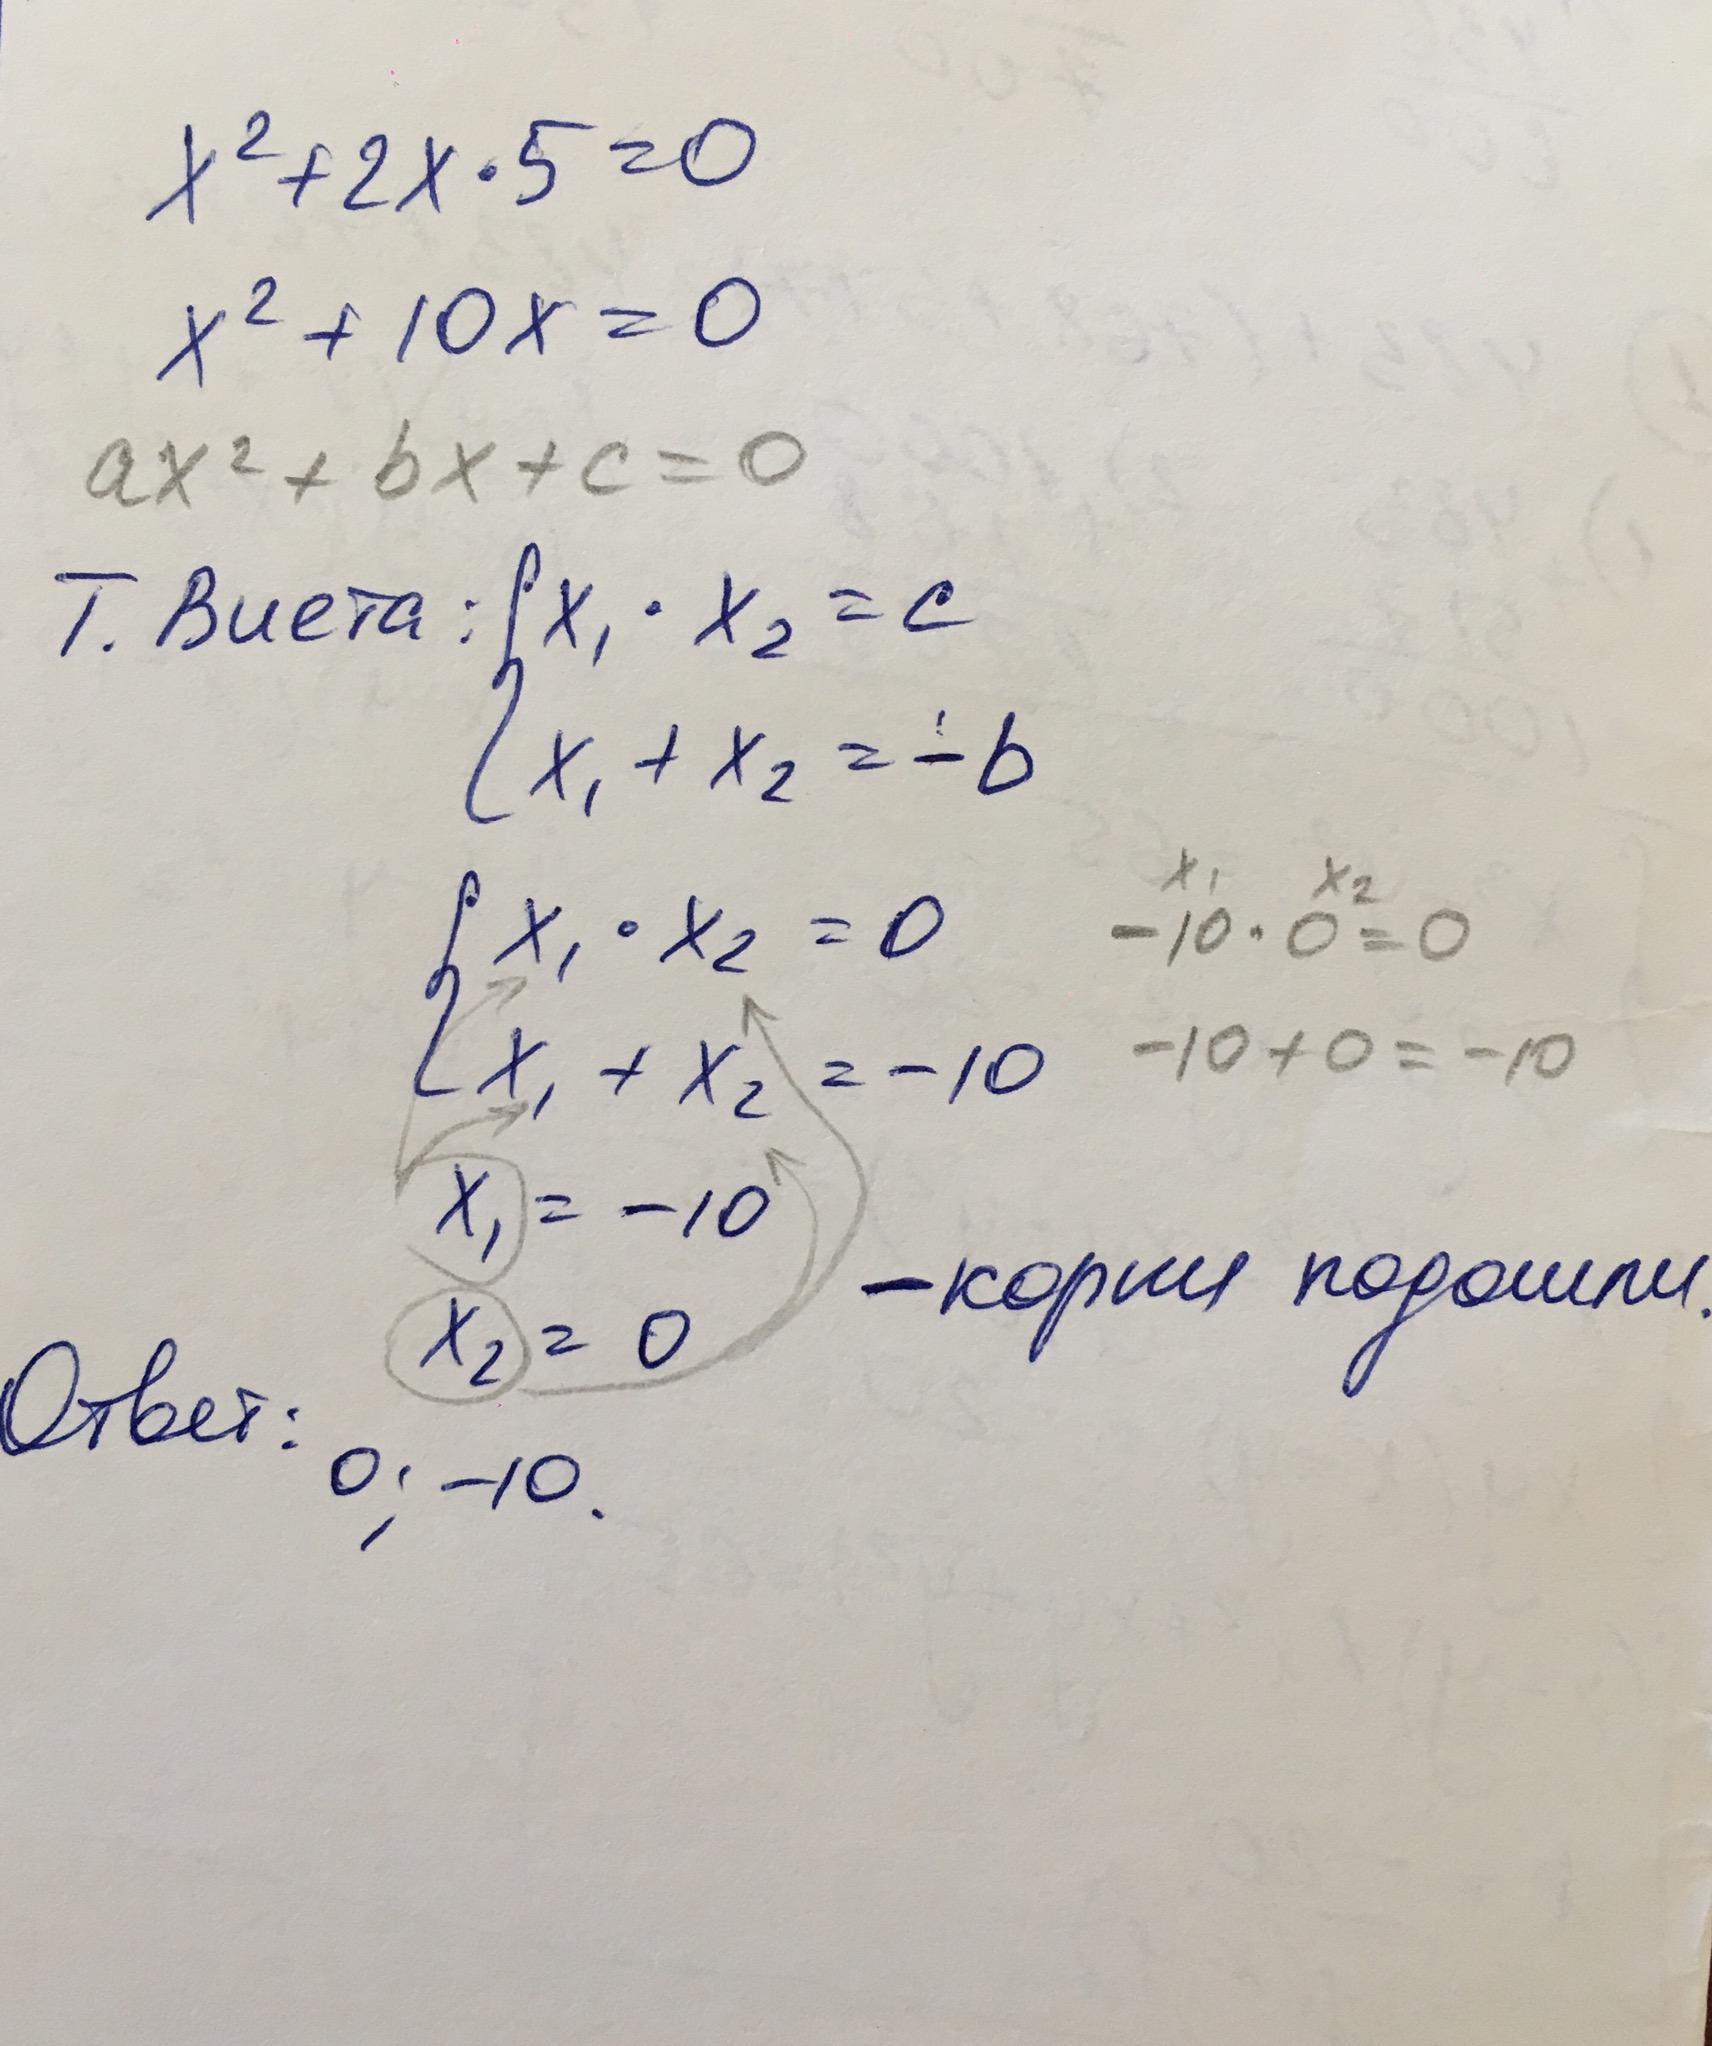 x² + 2x · 5 = 0
x² + 10x = 0
ax² + bx + c = 0
Т. Виета: { x₁ · x₂ = c
x₁ + x₂ = -b
{ x₁ · x₂ = 0
x₁ x₂
-10 · 0 = 0
x₁ + x₂ = -10
-10 + 0 = -10
x₁ = -10
x₂ = 0
- корни подошли.
Ответ:
0; -10.